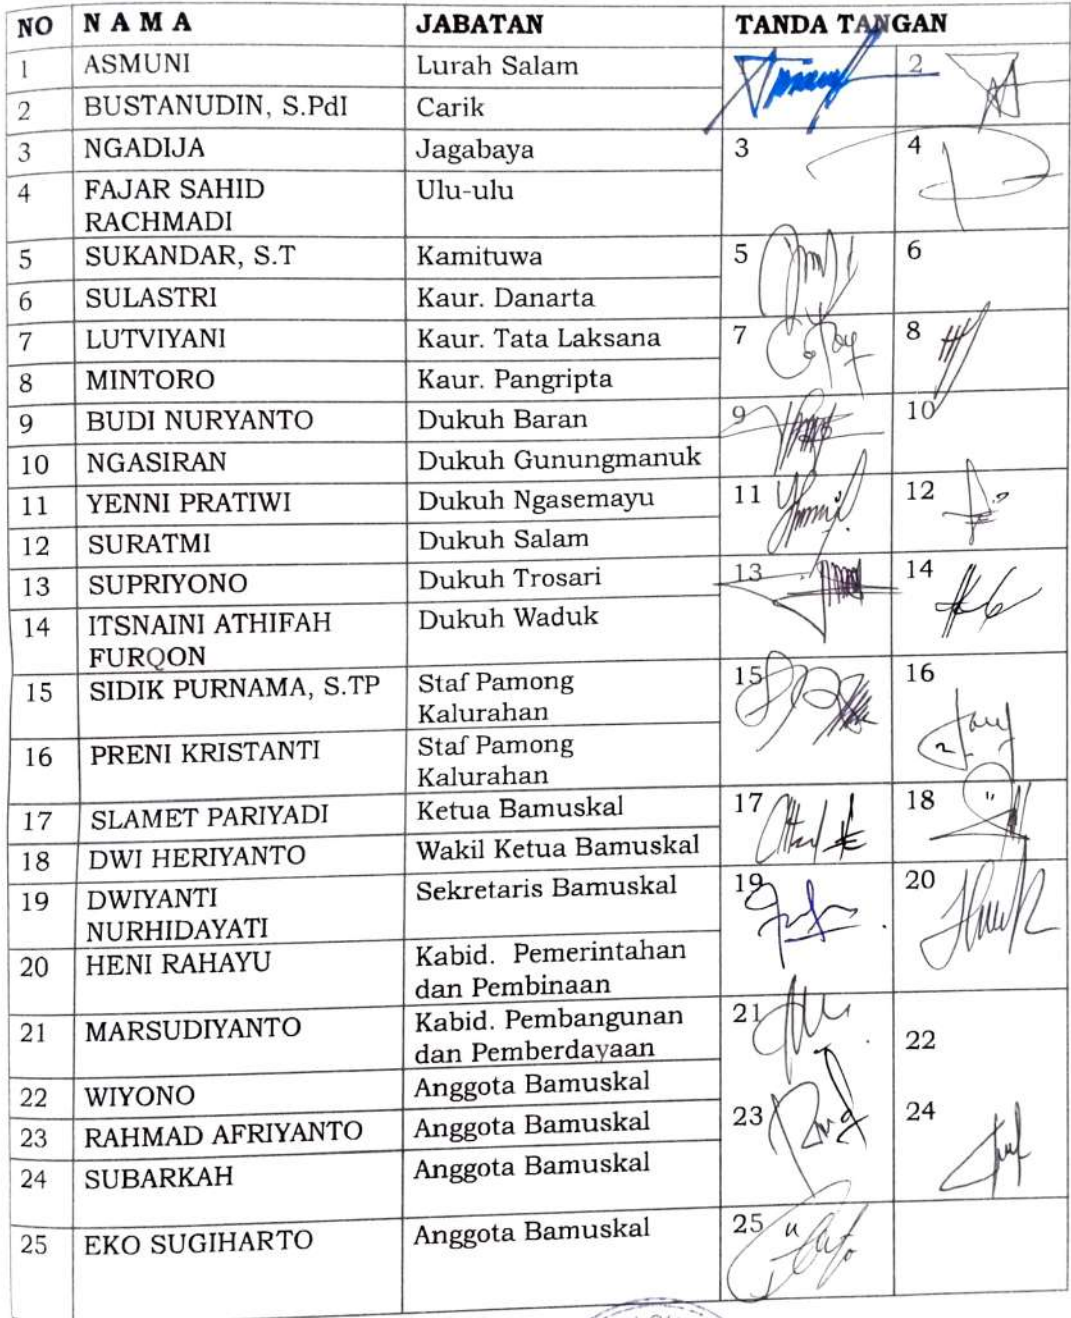 NO N A M A JABATAN TANDA TANGAN
1 ASMUNI Lurah Salam 2
2 BUSTANUDIN, S.PdI Carik
3 NGADIJA Jagabaya 3 4
4 FAJAR SAHID Ulu-ulu
RACHMADI
5 SUKANDAR, S.T Kamituwa 5 6
6 SULASTRI Kaur. Danarta
7 LUTVIYANI Kaur. Tata Laksana 7 8
8 MINTORO Kaur. Pangripta
9 BUDI NURYANTO Dukuh Baran 9 10
10 NGASIRAN Dukuh Gunungmanuk
11 YENNI PRATIWI Dukuh Ngasemayu 11 12
12 SURATMI Dukuh Salam
13 SUPRIYONO Dukuh Trosari 13 14
14 ITSNAINI ATHIFAH Dukuh Waduk
FURQON
15 SIDIK PURNAMA, S.TP Staf Pamong 15 16
Kalurahan
16 PRENI KRISTANTI Staf Pamong
Kalurahan
17 SLAMET PARIYADI Ketua Bamuskal 17 18
18 DWI HERIYANTO Wakil Ketua Bamuskal
19 DWIYANTI Sekretaris Bamuskal 19 20
NURHIDAYATI
20 HENI RAHAYU Kabid. Pemerintahan
dan Pembinaan
21 MARSUDIYANTO Kabid. Pembangunan 21 22
dan Pemberdayaan
22 WIYONO Anggota Bamuskal
23 RAHMAD AFRIYANTO Anggota Bamuskal 23 24
24 SUBARKAH Anggota Bamuskal
25 EKO SUGIHARTO Anggota Bamuskal 25